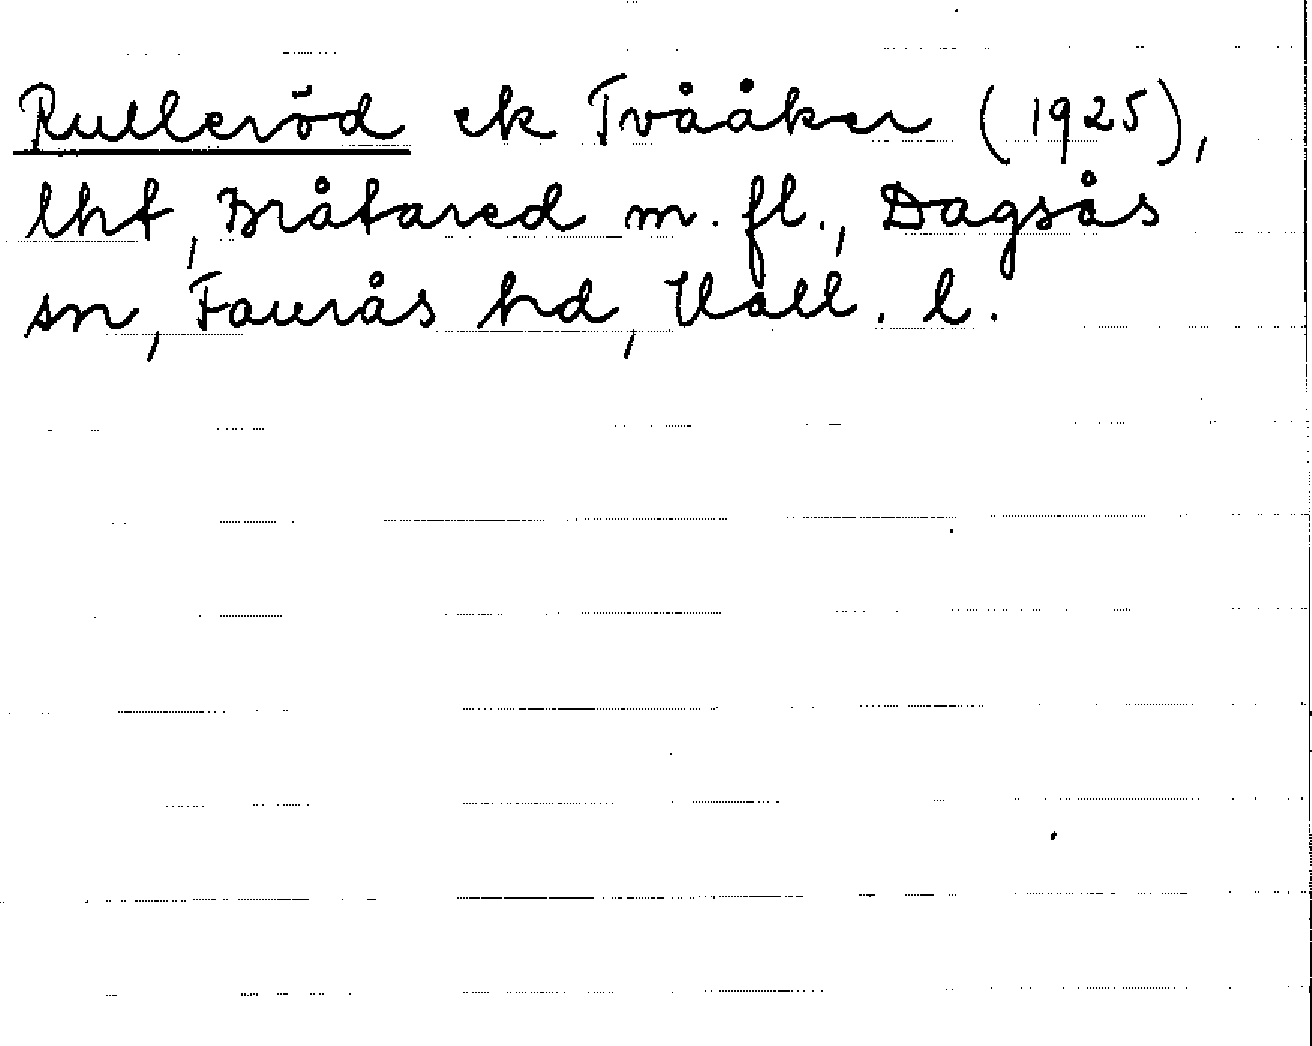 Rulleröd ek Tvååker (1925),
lht, Bråtared m. fl., Dagsås
sn, Faurås hd, Hall. l.